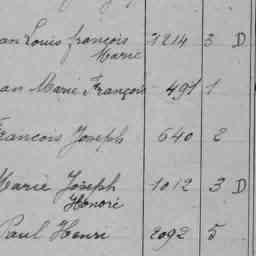 an Louis françois 1214 3 D
Marie
an Marie François 491 1
François Joseph 640 2
Marie Joseph 1012 3 D
Honoré
Paul Henri 2092 5